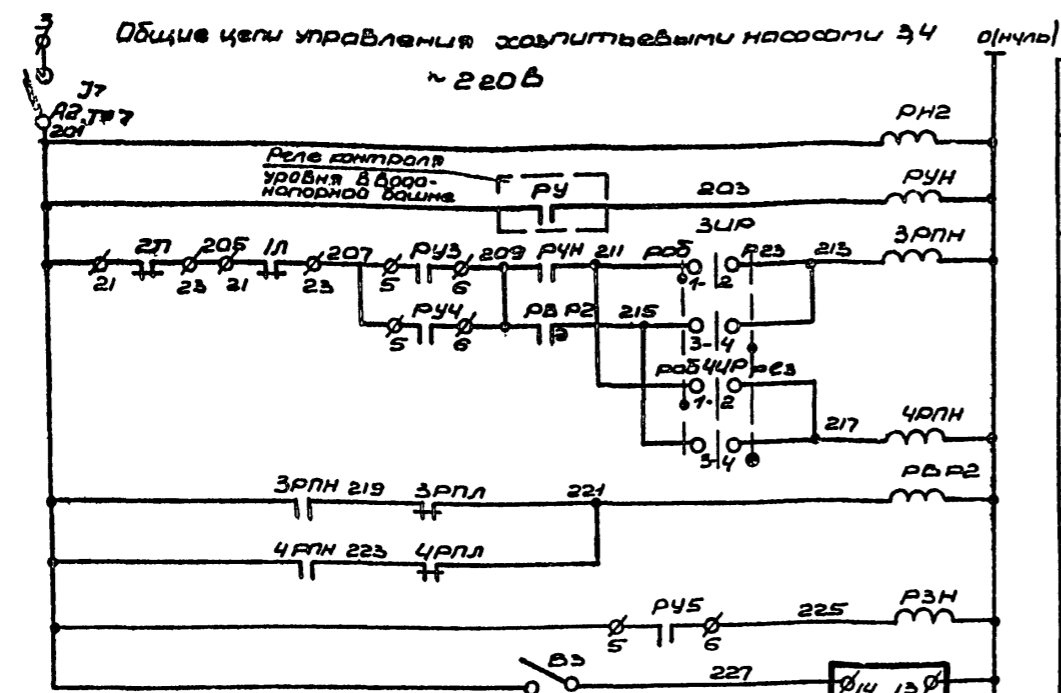 3
Общие цепи управления хозпитьевыми насосами 3,4
0(нуль)
~ 220 В
A2
201
РН2
Реле контроля
уровня в водо-
напорной башне
РУ
203
РУН
3ИР
2Л
205
1Л
207
РУ3
209
РУН
211
раб
рез
213
3РПН
21
23
21
23
5
6
1-
2
РУ4
РВР2
215
5
6
3-
4
раб
4ИР
рез
1-
2
217
4РПН
3-
4
3РПН 219 3РПЛ
221
РВР2
4РПН 223 4РПЛ
РУ5
225
РЗН
5
6
В3
227
14
13